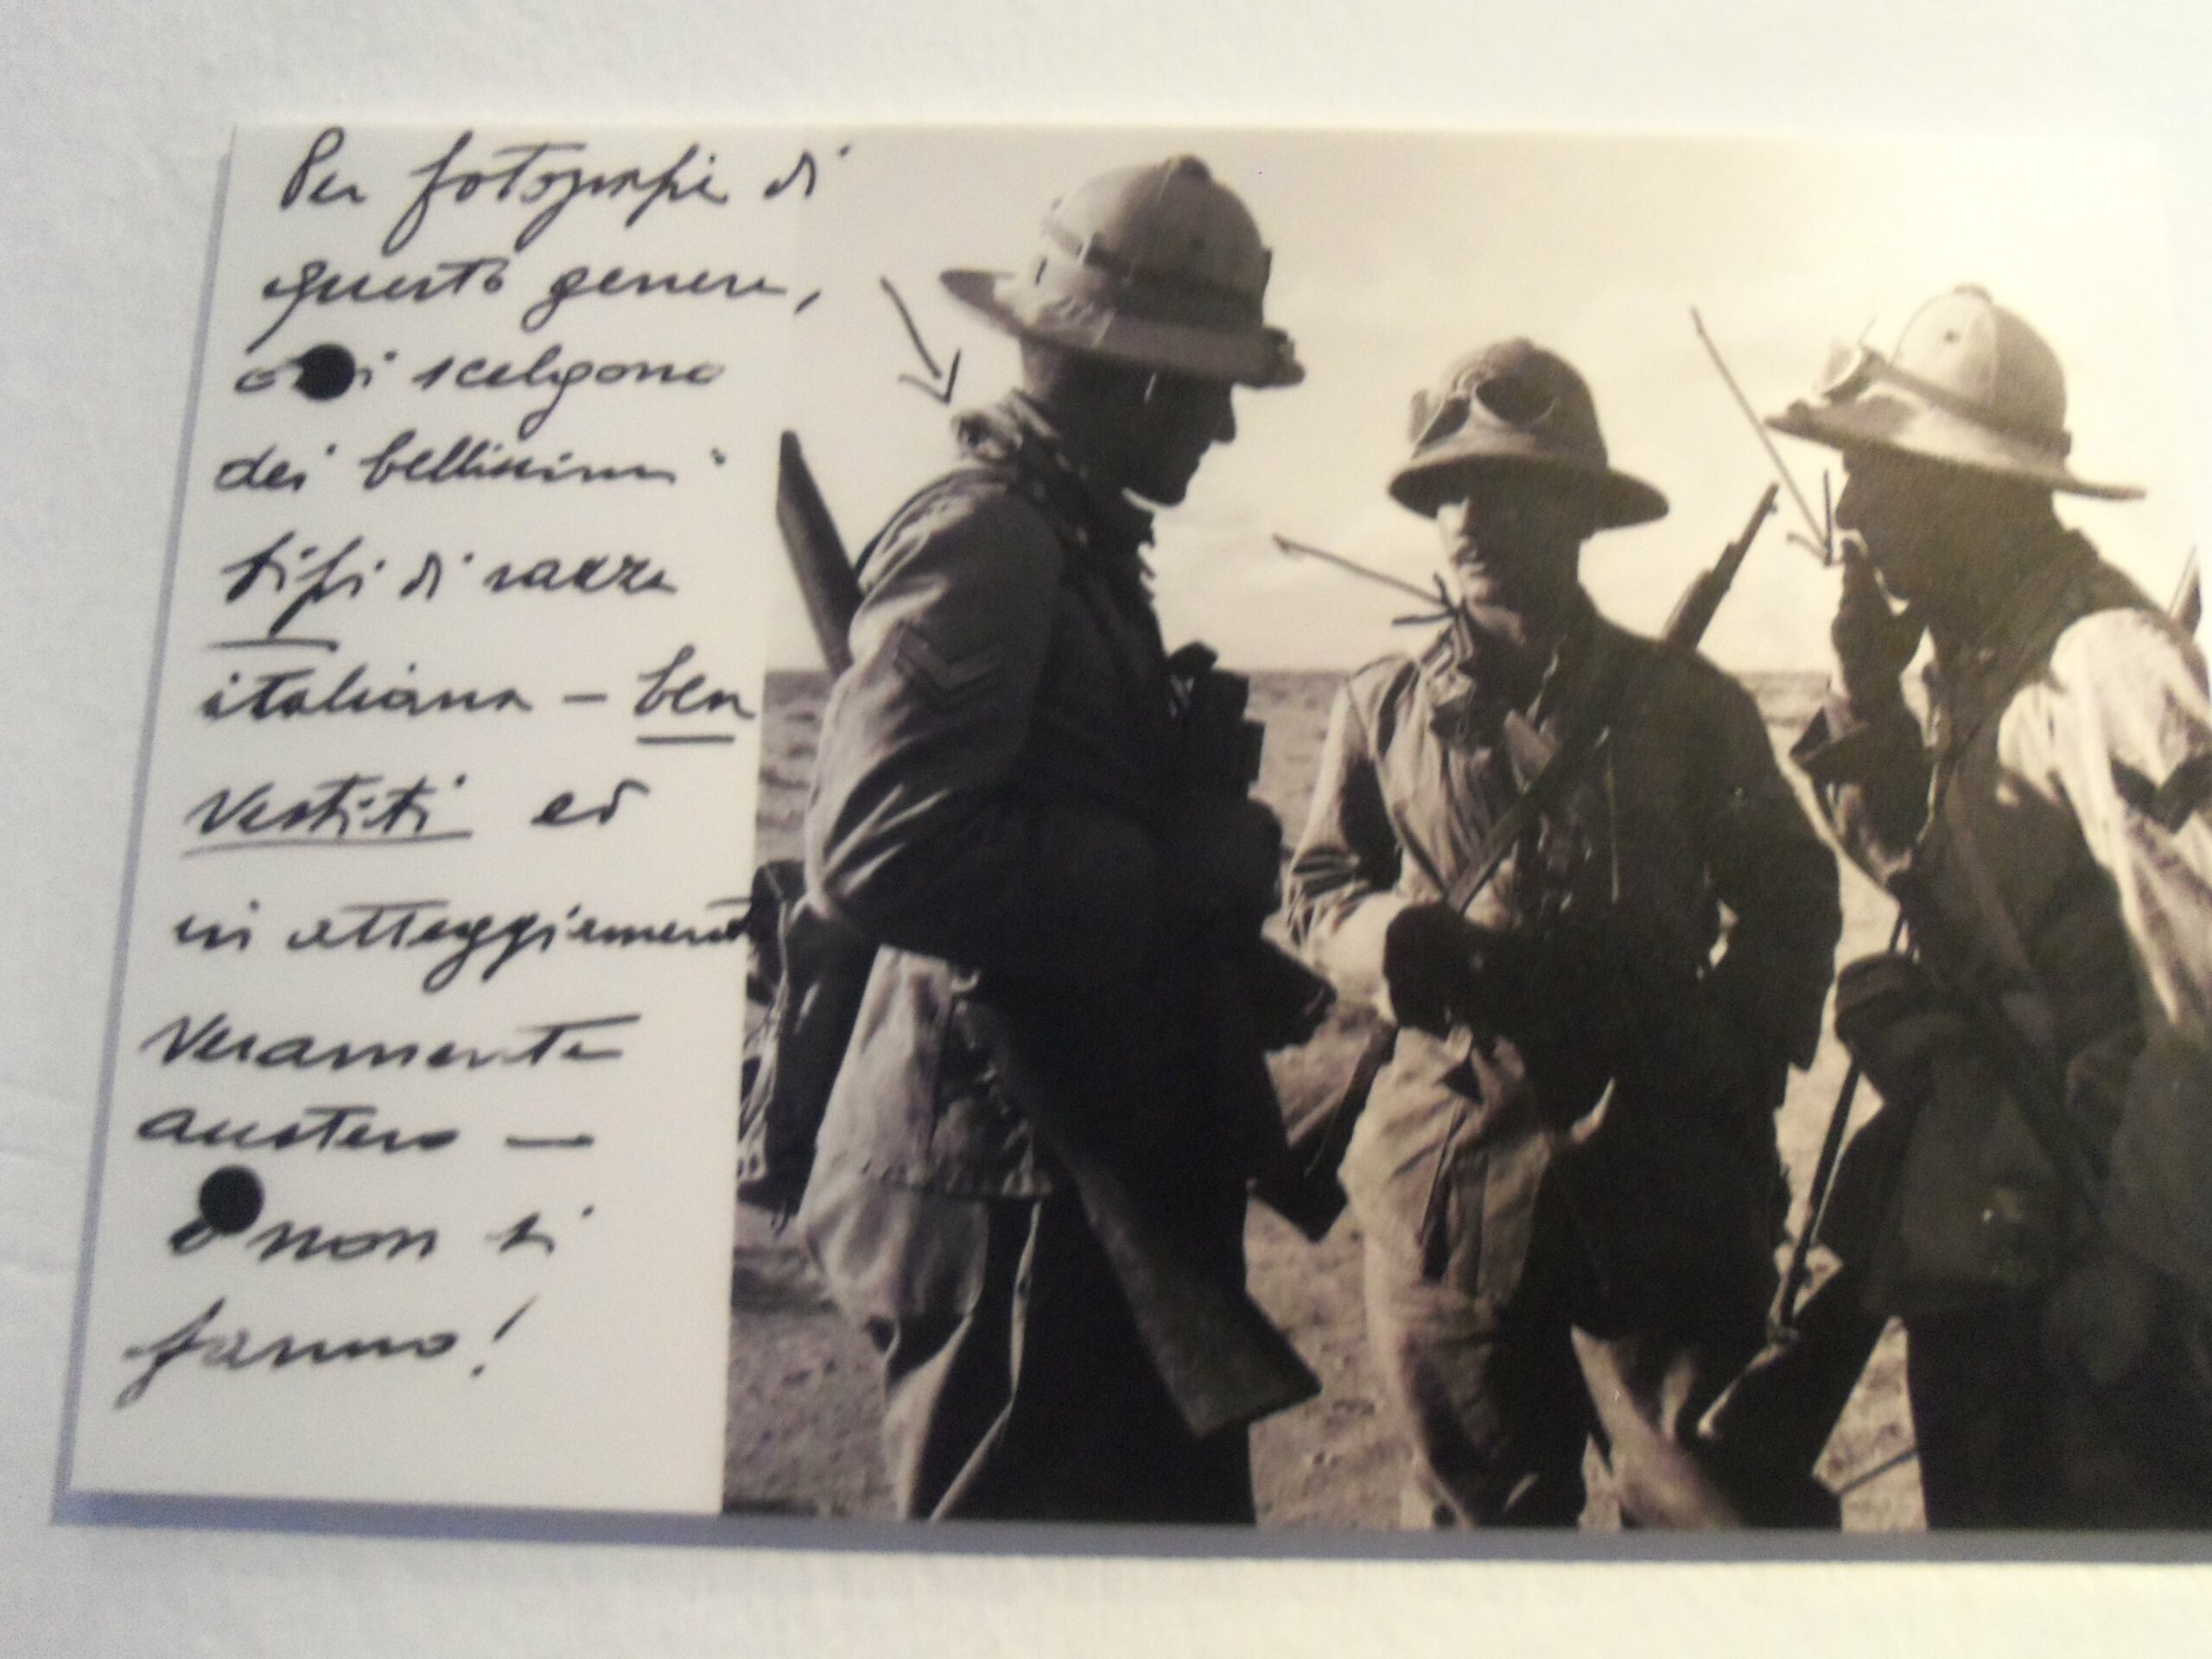 Per fotografie di
questo genere,
o si scelgono
dei bellissimi
tipi di razza
italiana – ben
vestiti ed
in atteggiamento
veramente
austero –
o non si
fanno!